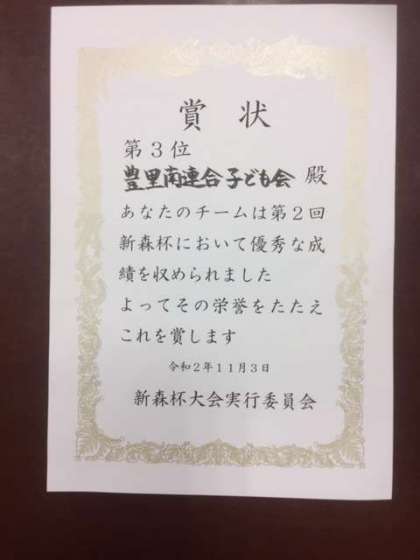 賞状
第3位
豊里南連合子ども会 殿
あなたのチームは第2回
新森杯において優秀な成
績を収められました
よってその栄誉をたたえ
これを賞します
令和2年11月3日
新森杯大会実行委員会